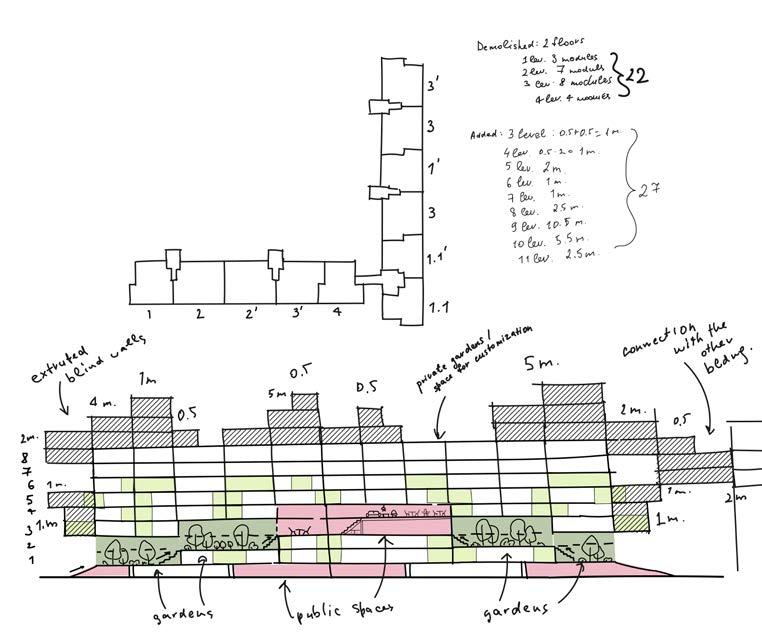 Demolished: 2 floors
1 lev. 3 modules
2 lev. 7 modules
3 lev. 8 modules
4 lev. 4 modules
22
Added: 3 level: 0.5+0.5=1m.
4 lev. 0.5·2=1m.
5 lev. 2m.
6 lev. 1m.
7 lev. 1m.
8 lev. 2.5m.
9 lev. 10.5m.
10 lev. 5.5m.
11 lev. 2.5m.
27
3'
3
1'
3
1.1'
1.1
1 2 2' 3' 4
extruted
blind walls
private gardens/
space for customization
connection
with the
other
bldng.
4 m.
1m
0.5
5 m.
0.5
0.5
5 m.
2 m.
0.5
2m.
8
7
6
5
4
3
2
1
1m.
1.m
1m.
1m.
2m
gardens
public spaces
gardens